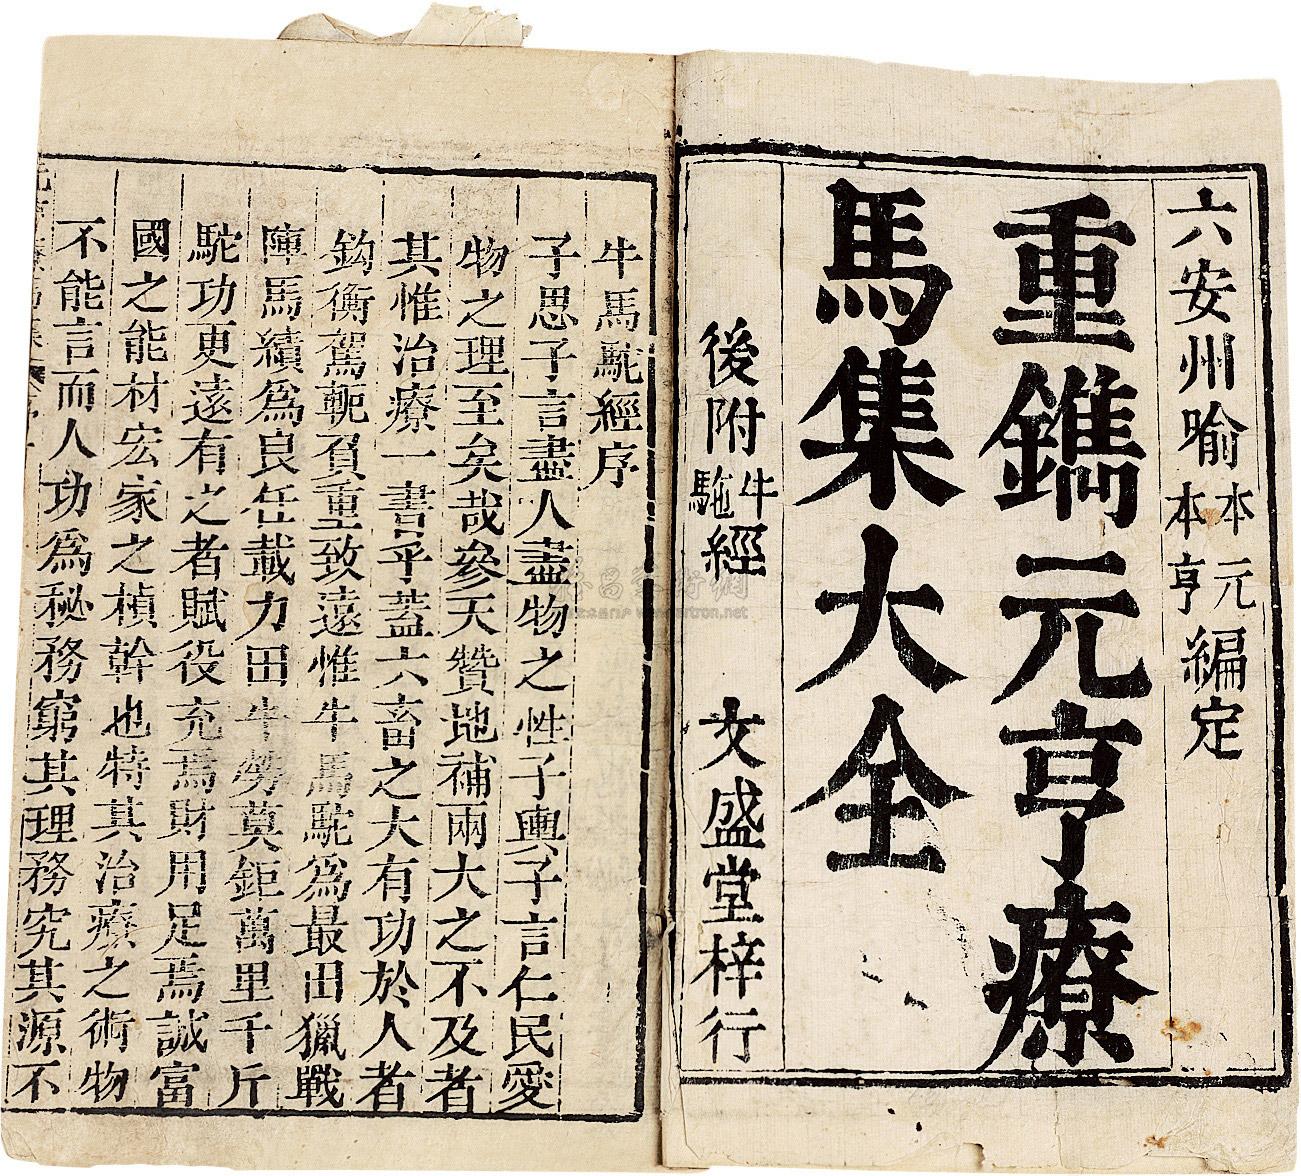 六安州喻本元本亨編定
重鐫元亨療
馬集大全
後附牛駞經
文盛堂梓行
牛馬駝經序
子思子言盡人盡物之性子輿子言仁民愛
物之理至矣哉參天贊地補兩大之不及者
其惟治療一書乎蓋六畜之大有功於人者
鈎衡駕軛負重致遠惟牛馬駝為最田獵戰
陣馬績為良任載力田牛勞莫鉅萬里千斤
駝功更遠有之者賦役充焉財用足焉誠富
國之能材宏家之楨幹也特其治療之術物
不能言而人功為秘務窮其理務究其源不